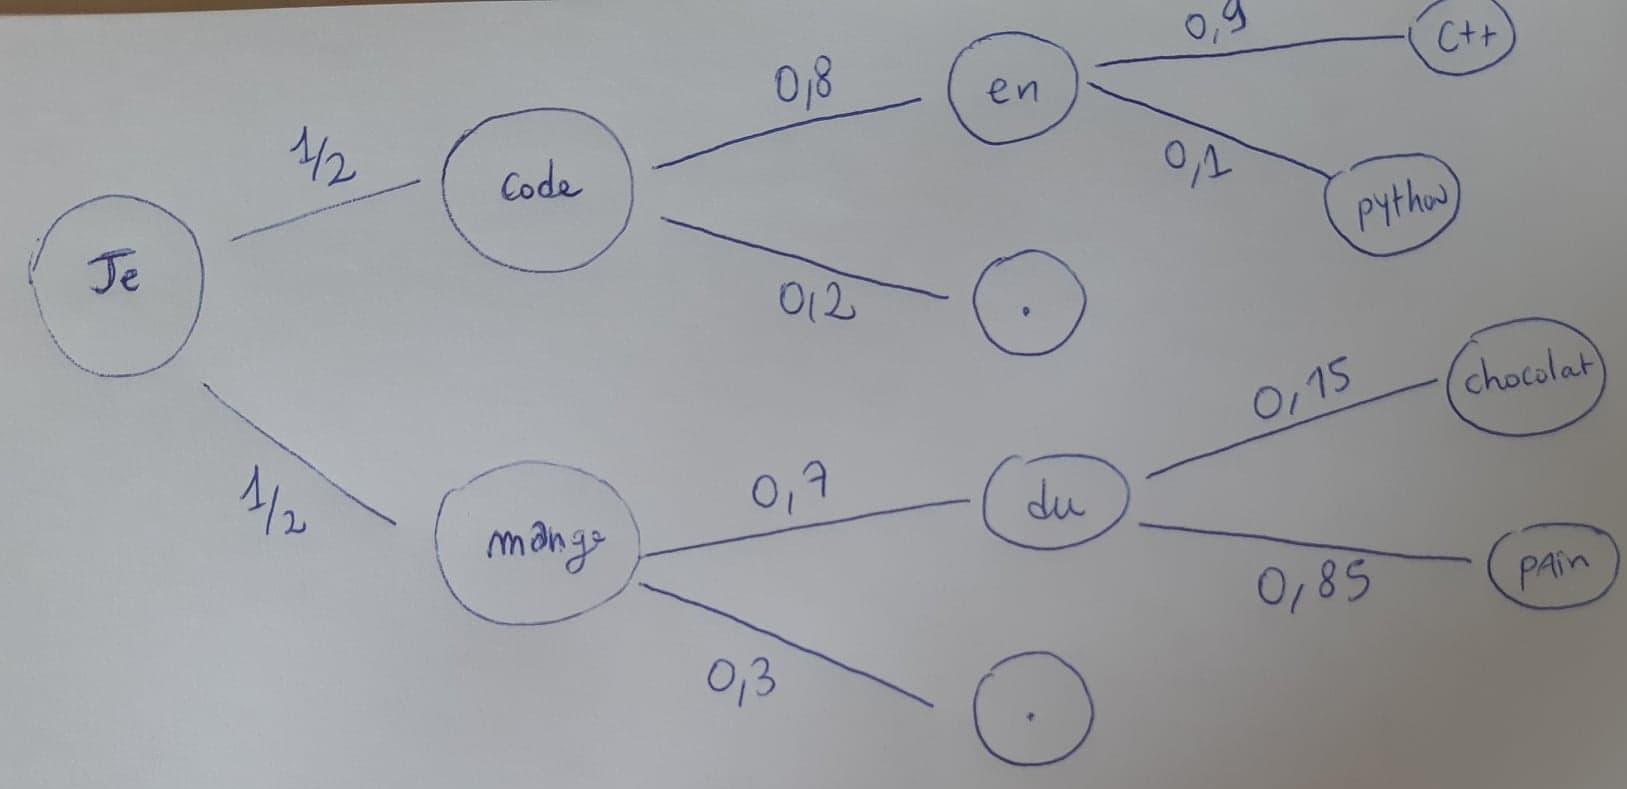 Je
1/2
code
0,8
en
0,9
C++
0,1
python
0,2
.
1/2
mange
0,7
du
0,15
chocolat
0,85
pAin
0,3
.